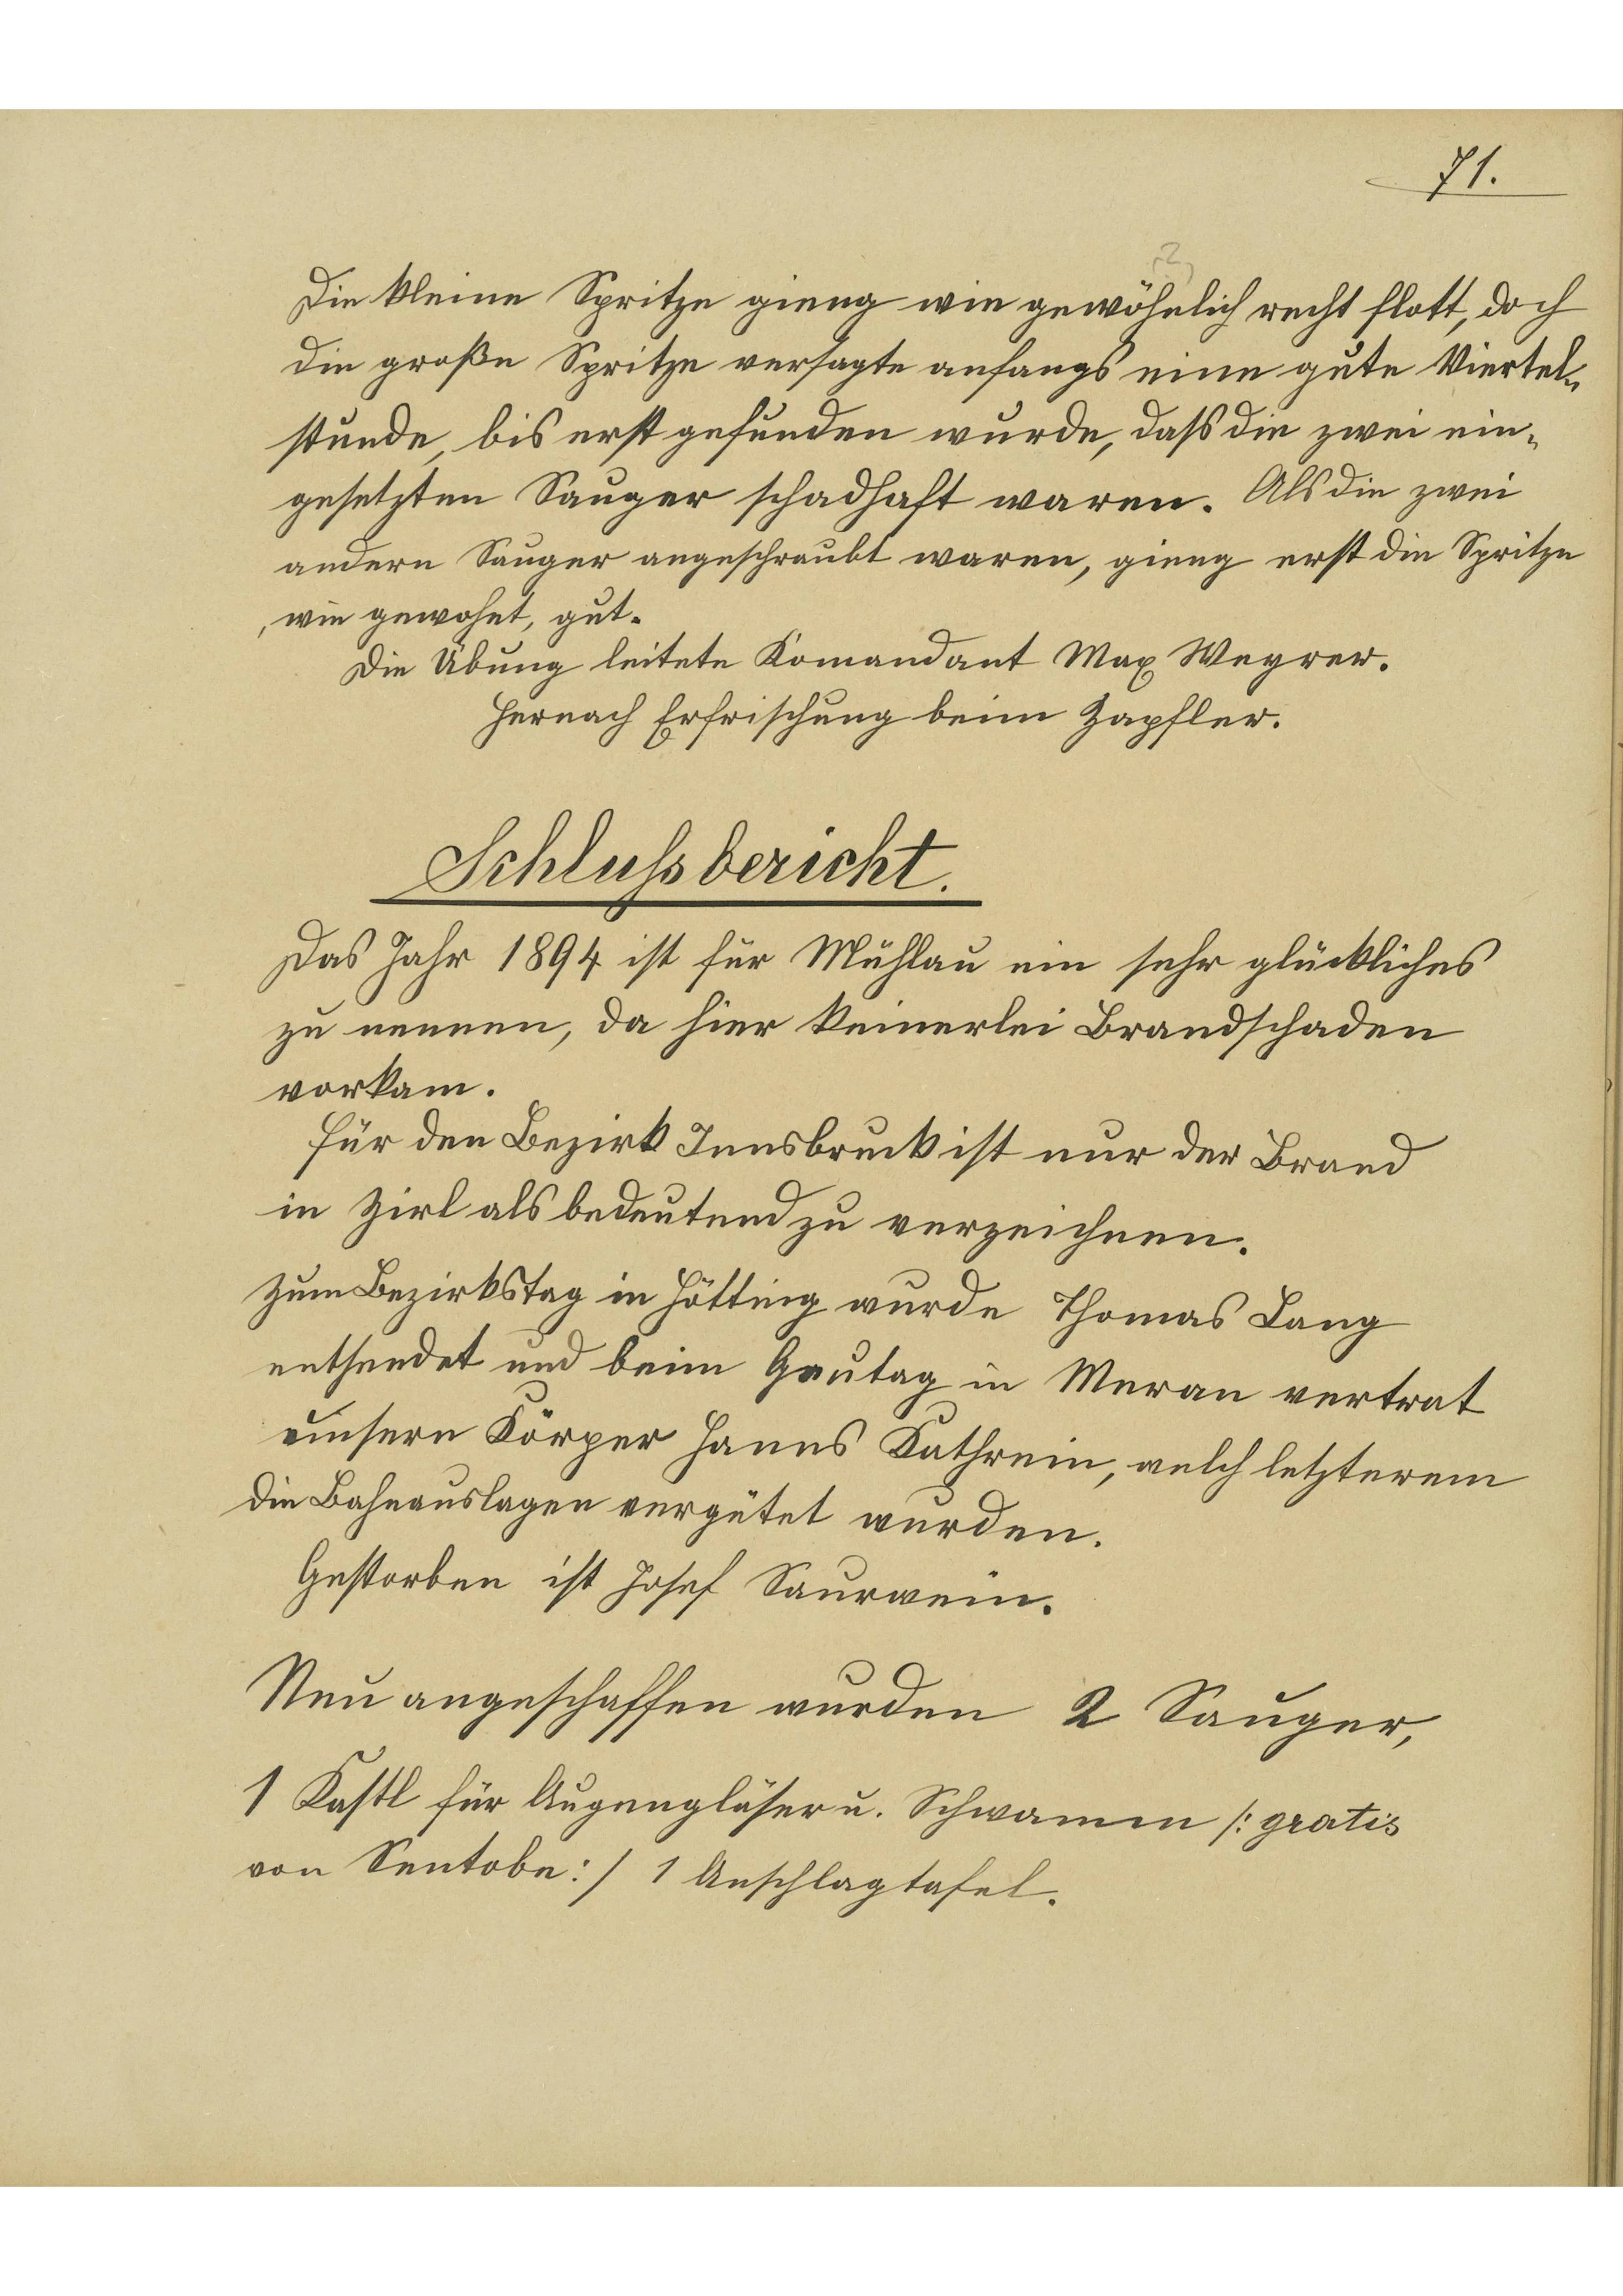 71.
Die kleine Spritze gieng wie gewöhnlich recht flott, doch
die große Spritze versagte anfangs eine gute Viertel-
stunde, bis erst gefunden wurde, dass die zwei ein-
gesetzten Sauger schadhaft waren. Als die zwei
andern Sauger angeschraubt waren, gieng erst die Spritze
, wie gewohnt, gut.
Die Übung leitete Komandant Max Weyrer.
Hernach Erfrischung beim Zapfler.
Schlussbericht.
Das Jahr 1894 ist für Mühlau ein sehr glückliches
zu nennen, da hier keinerlei Brandschaden
vorkam.
Für den Bezirk Innsbruck ist nur der Brand
in Zirl als bedeutend zu verzeichnen.
Zum Bezirkstag in Hötting wurde Thomas Lang
entsendet und beim Gautag in Meran vertrat
unsern Körper Hanns Kathrein, welch letzterem
die Bahnauslagen vergütet wurden.
Gestorben ist Josef Saurwein.
Neu angeschaffen wurden 2 Sauger,
1 Kastl für Augengläser u. Schwamm /: gratis
von Sentobe :/ 1 Anschlagtafel.